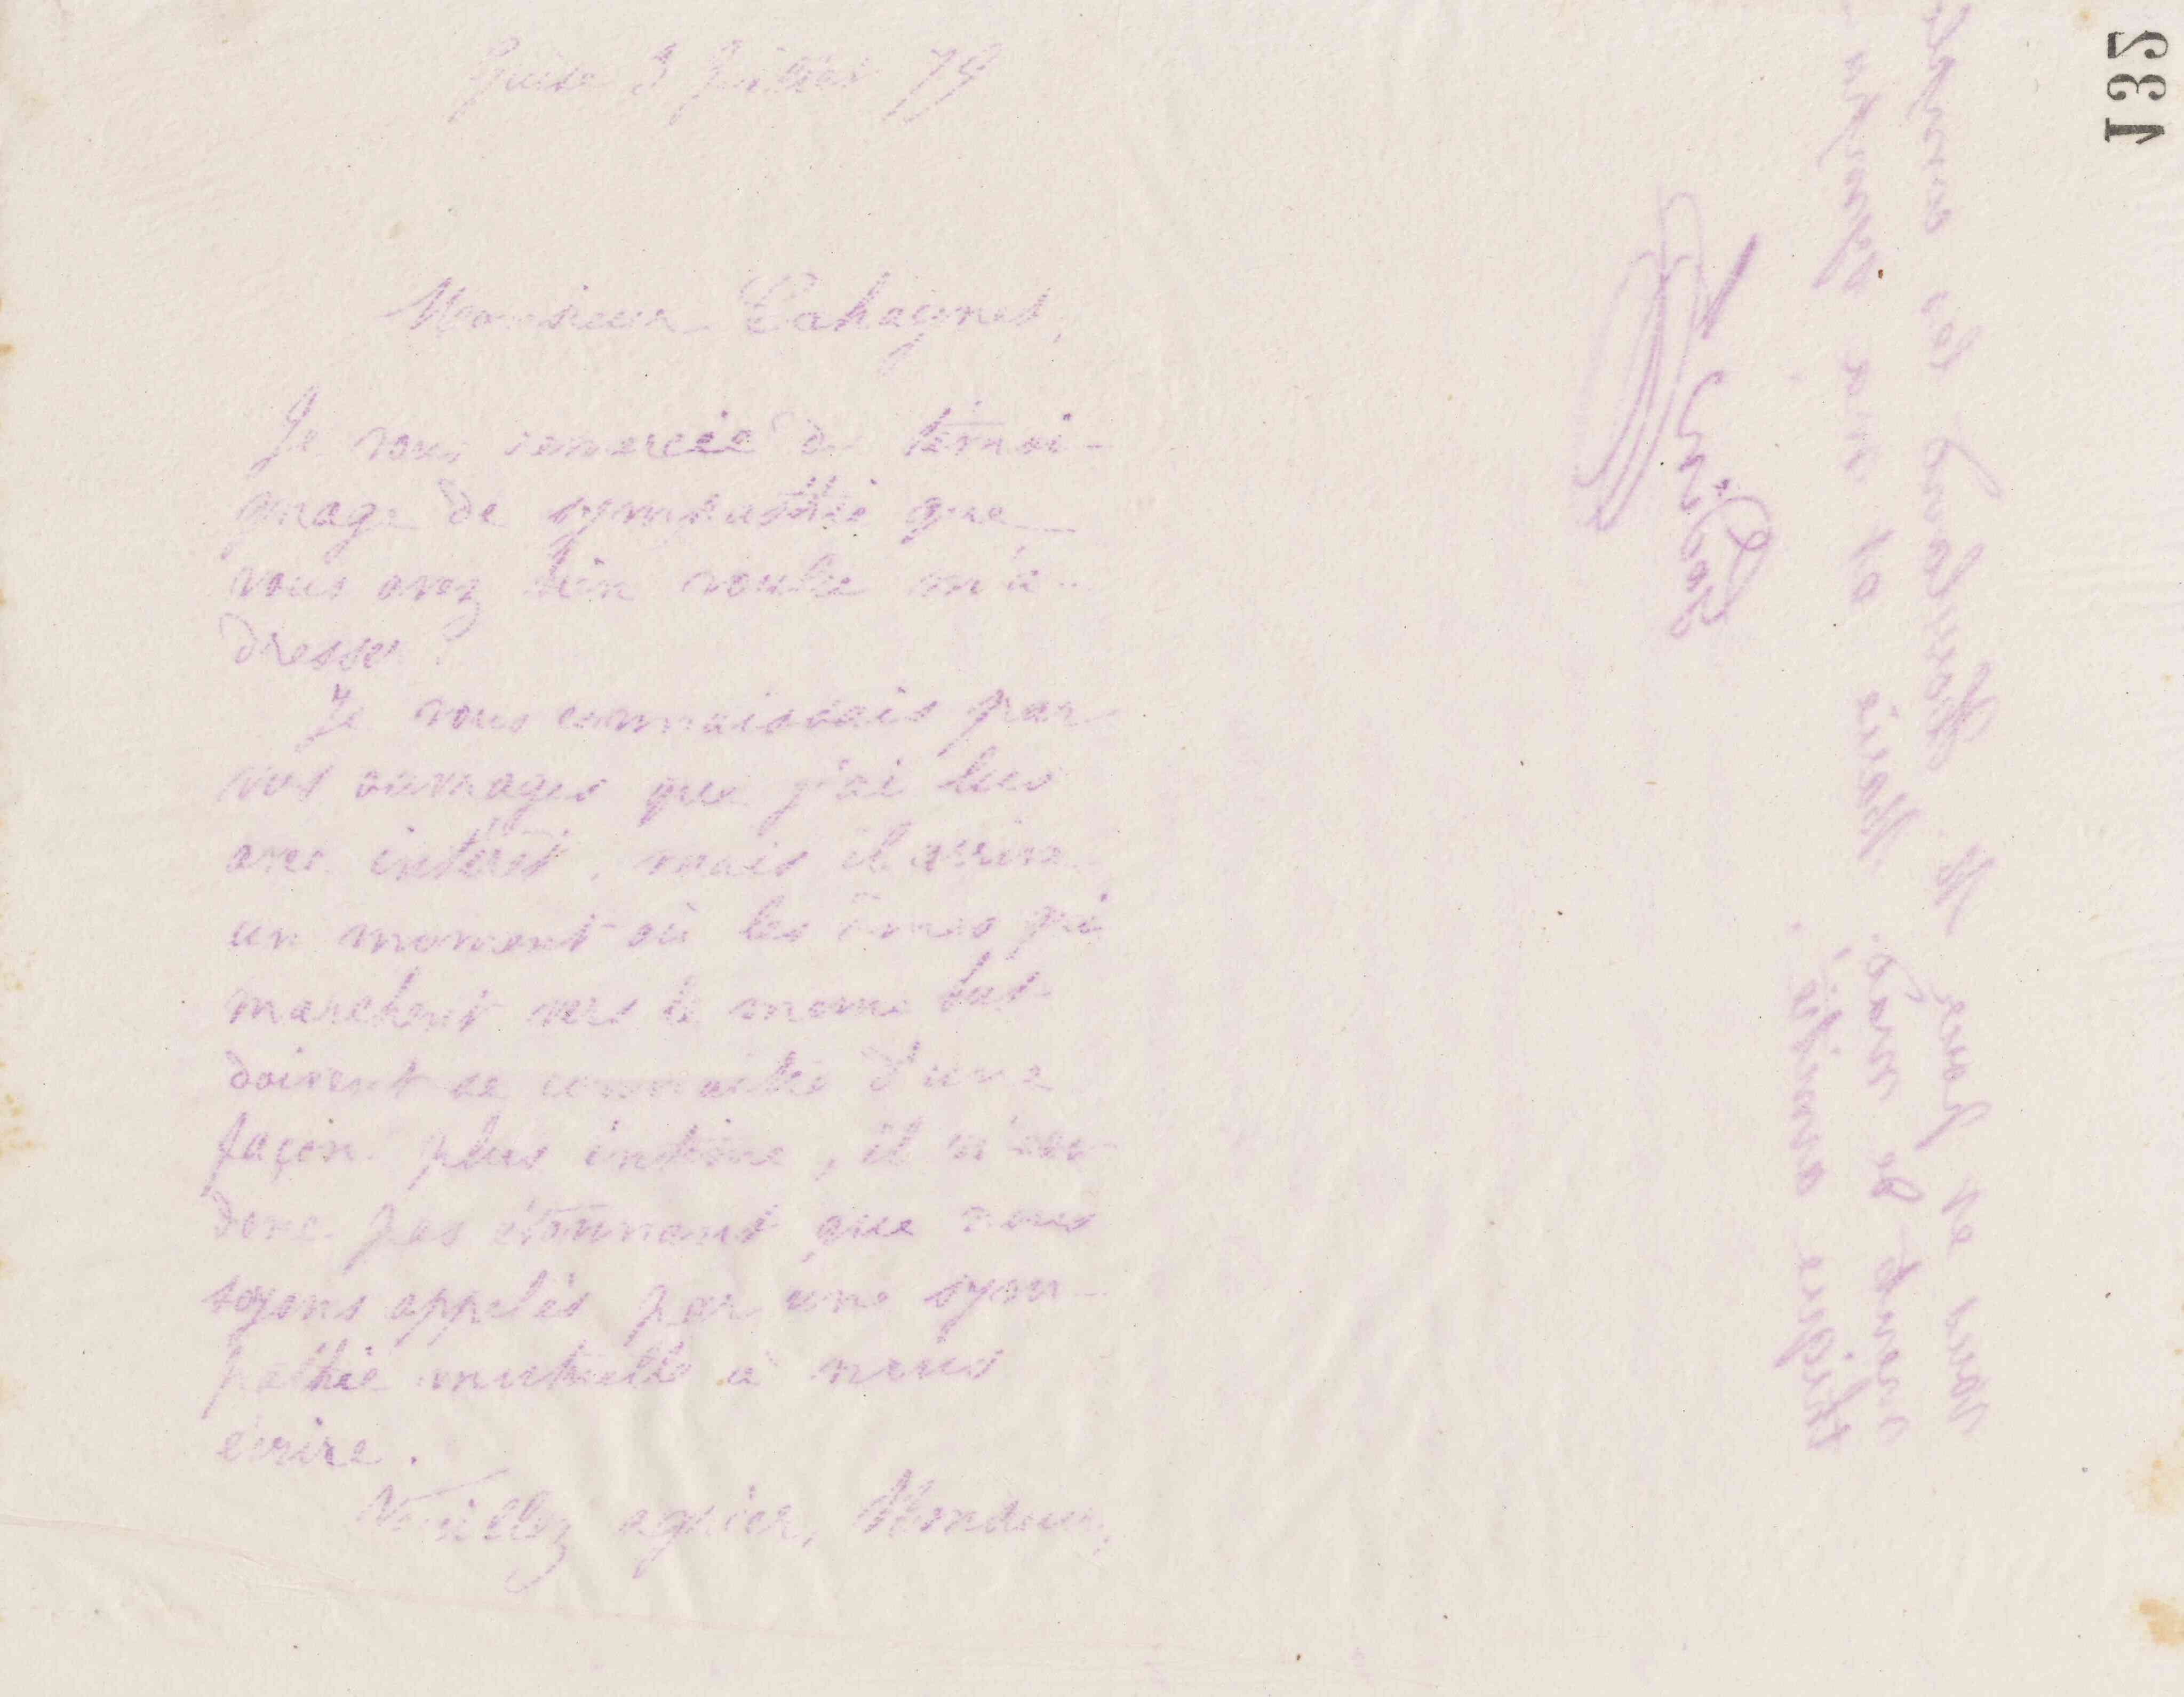 132
Guise 3 Juillet 79
Monsieur Cahagnet,
Je vous remercie du témoi-
gnage de sympathie que
vous avez bien voulu m'a-
dresser.
Je vous connaissais par
vos ouvrages que j'ai lus
avec intérêt, mais il arrive
un moment où les âmes qui
marchent vers le même but
doivent se connaître d'une
façon plus intime, il n'est
donc pas étonnant que nous
soyons appelés par une sym-
pathie mutuelle à nous
écrire.
Veuillez agréer, Monsieur,
vous et pour M les
Marie et ma sympa-
thique amitié.
Godin